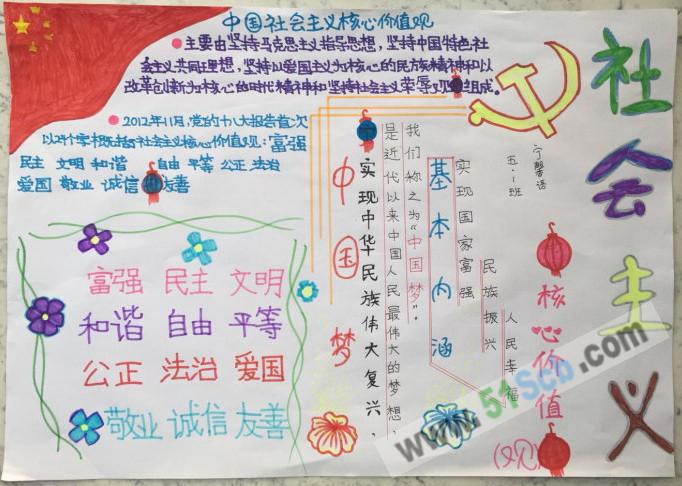 中国社会主义核心价值观
主要由坚持马克思主义指导思想，坚持中国特色社
会主义共同理想，坚持以爱国主义为核心的民族精神和以
改革创新为核心的时代精神和坚持社会主义荣辱观组成。
2012年11月，党的十八大报告首次
以24个字概括社会主义核心价值观：富强
民主 文明 和谐 自由 平等 公正 法治
爱国 敬业 诚信 友善
富强 民主 文明
和谐 自由 平等
公正 法治 爱国
敬业 诚信 友善
社会主义
核心价值
(观)
五.1班
人民幸福
民族振兴
实现国家富强
基本内涵
我们称之为“中国梦”。
是近代以来中国人民最伟大的梦想，
实现中华民族伟大复兴，
中国梦
www.51Scb.com